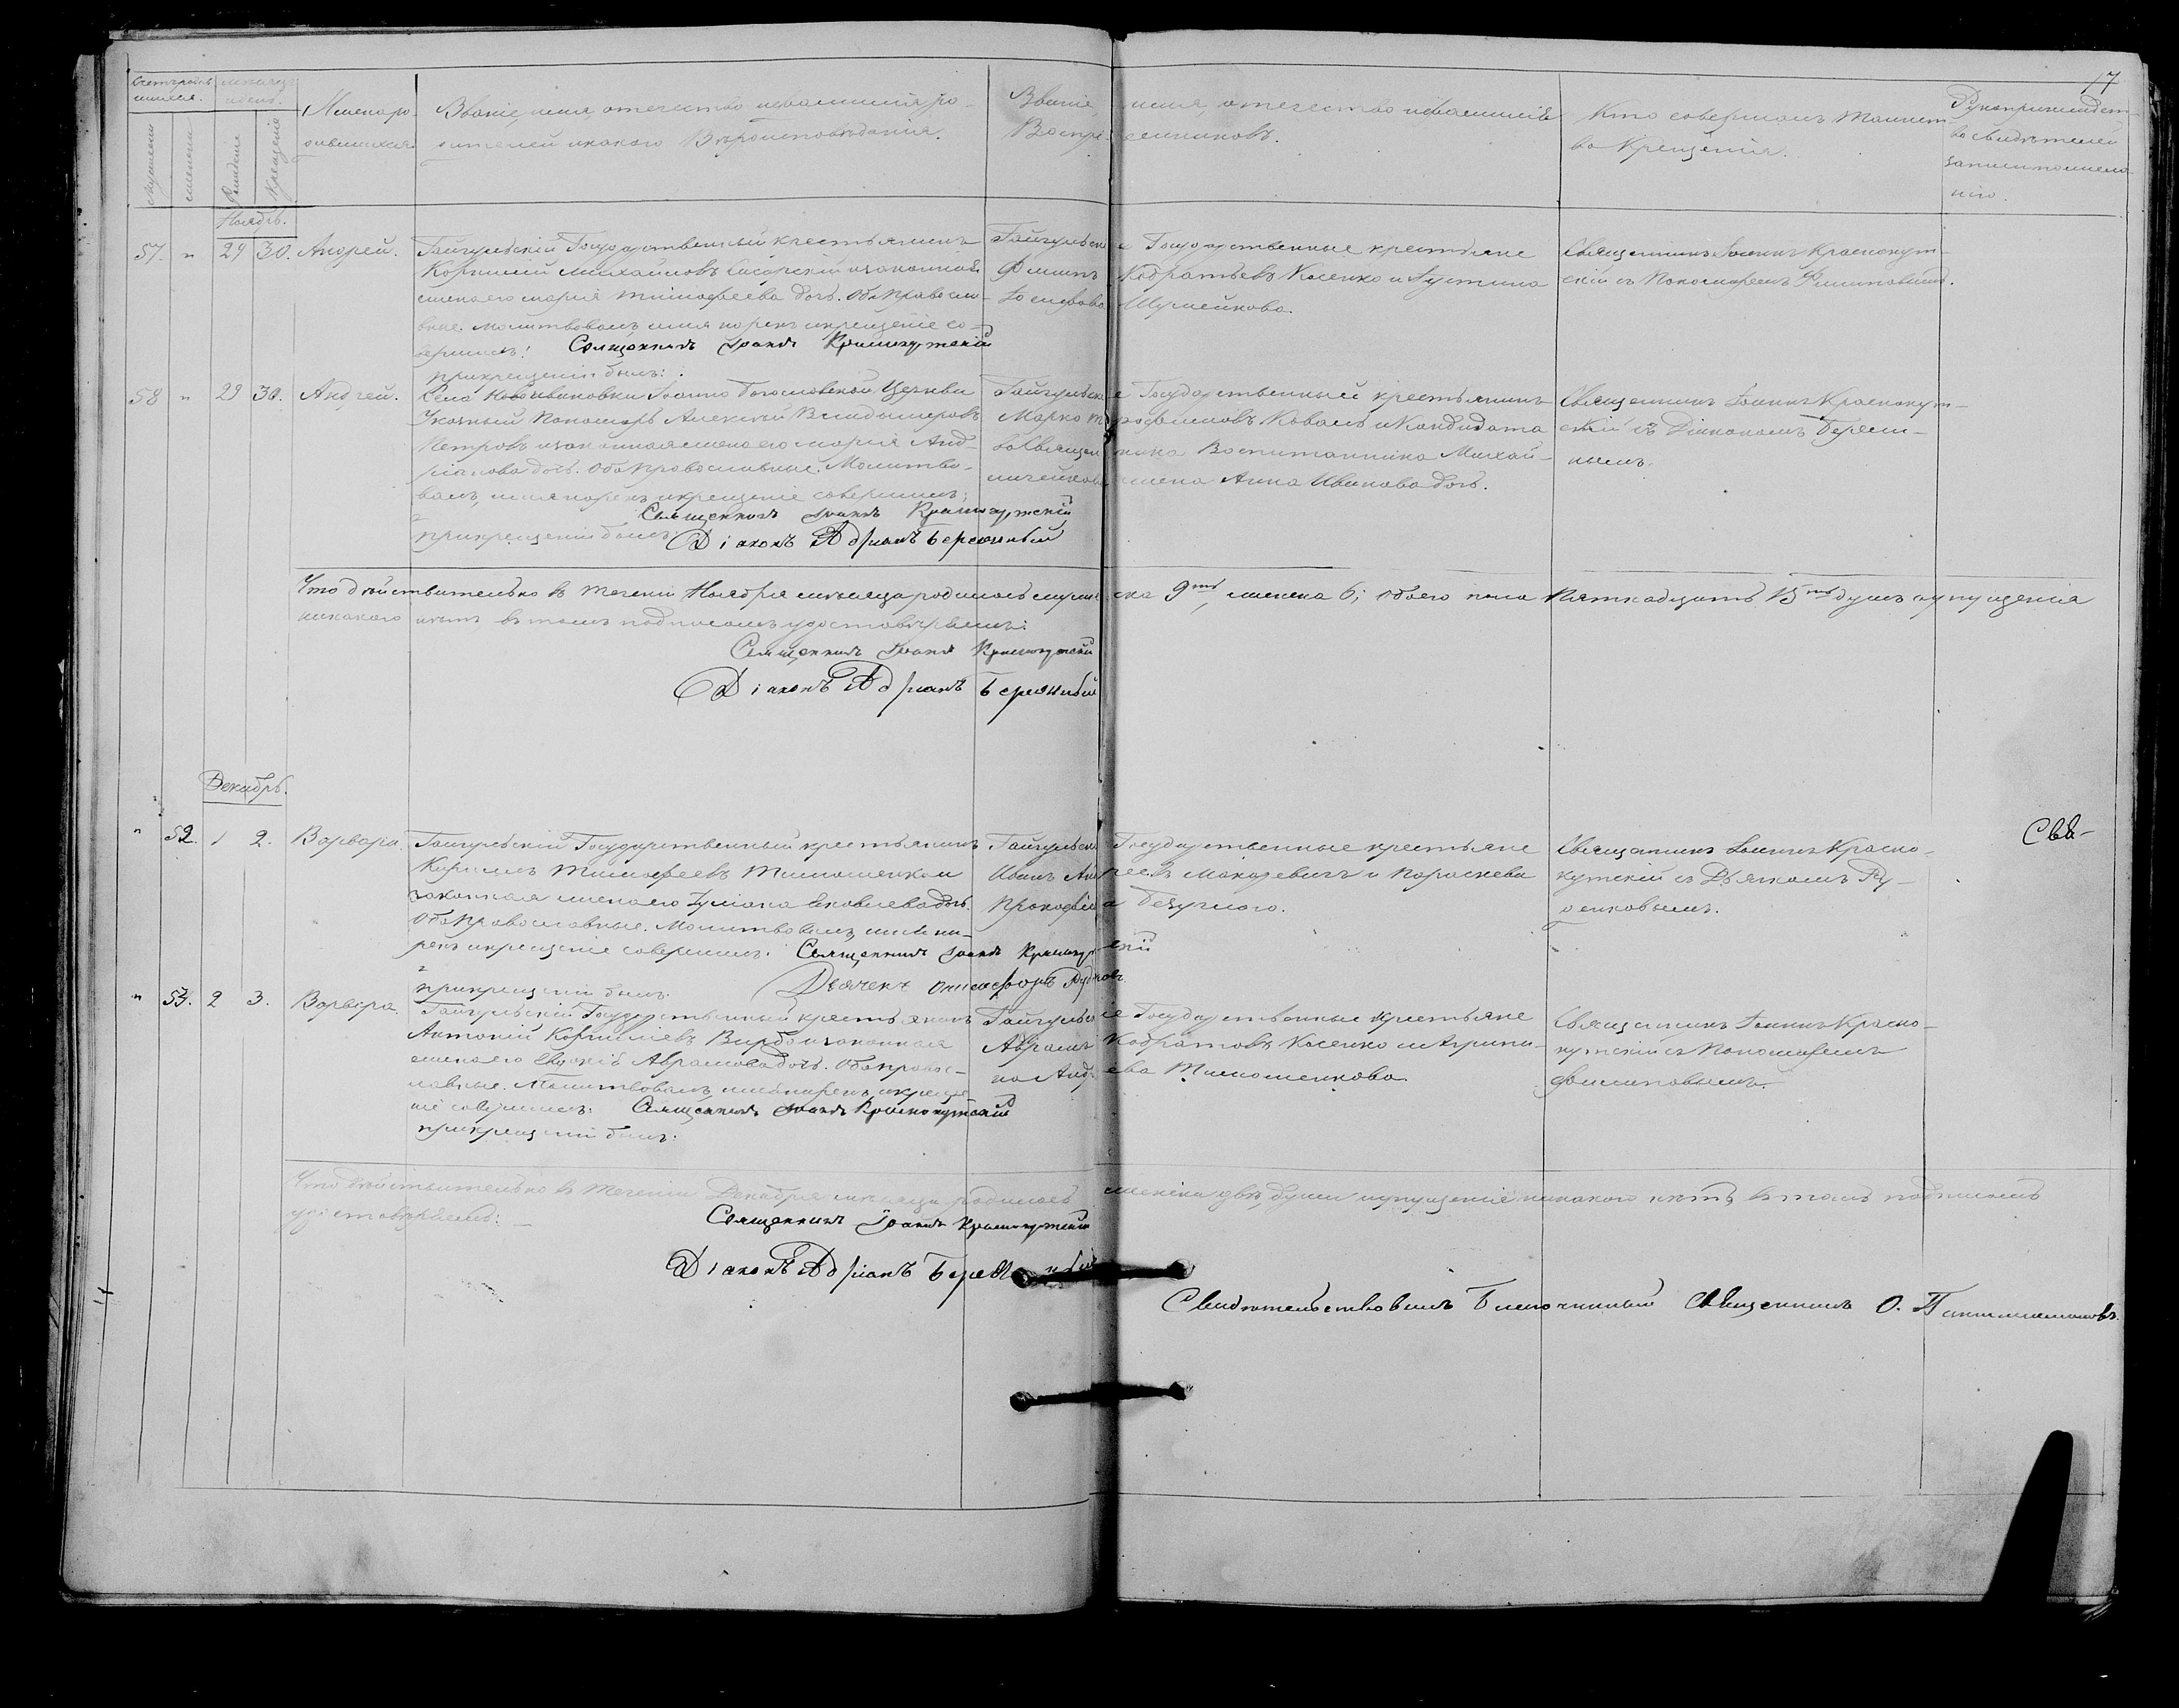 17
Счетъ родившихся.
Мѣсяцъ и день.
мужескаго
женскаго
Рожденія
Крещенія
Имена родившихся.
Званіе, имя, отечество и фамилія родителей и какого Вѣроисповѣданія.
Званіе, имя, отечество и фамилія
Воспріемниковъ.
Кто совершалъ таинство
Крещенія.
Рукоприкладство свидѣтелей
записи по
Ноябрь.
57. " 29 30. Андрей.
Гайчульскій Государственный крестьянинъ
Корнилій Михайловъ и законная
жена его Марія Тимофеева дочь. Оба Православные. Молитвовалъ, имя нарекъ и крещеніе совершилъ: Священникъ Іоаннъ Краснокутскій
при крещеніи былъ:
Гайчульскіе Государственные крестьяне
Филипъ Кодратьевъ Косенко и Густина
Іосифова Шумейкова.
Священникъ Іоаннъ Краснокутскій съ Пономаремъ Филиповымъ.
58 " 29 30. Андрей.
Села Новоивановки Іоанно Богословской Церкви
Указный Пономарь Алексѣй Владимеровъ
Петровъ и законная жена его Марія Андріанова дочь. Оба Православные. Молитвовалъ, имя нарекъ и крещеніе совершилъ:
Священникъ Іоаннъ Краснокутскій
при крещеніи былъ Діаконъ Адріанъ Бережный
Гайчульскіе Государственный крестьянинъ
Марко Коваль и Кандидата
Воспитанника
жена Анна Иванова дочь.
Священникъ Іоаннъ Краснокутскій съ Діакономъ Бережнымъ.
Что дѣйствительно въ теченіи Ноября мѣсяца родилось мужеска 9ть, женска 6; обоего пола Пятнадцать 15ть душъ и упущенія
никакого нѣтъ въ томъ подписомъ удостовѣряемъ:
Священникъ Іоаннъ Краснокутскій
Діаконъ Адріанъ Бережный
Декабрь.
" 52. 1 2. Варвара.
Гайчульскій Государственный крестьянинъ
Тимофеевъ Тимошенко и
законная жена его Гуліана Яковлева дочь.
Оба Православные. Молитвовалъ, имя нарекъ и крещеніе совершилъ: Священникъ Іоаннъ Краснокутскій
при крещеніи былъ. Дьячекъ Онисифоръ
Гайчульскіе Государственные крестьяне
Иванъ Макаревичъ и Параскева
Прокофіева
Священникъ Іоаннъ Краснокутскій съ Дьячкомъ
Свѣ-
" 53. 2 3. Варвара.
Гайчульскій Государственный крестьянинъ
Антоній Корниліевъ Вирба и законная
жена его Евдокія Аврамова дочь. Оба православные. Молитвовалъ, имя нарекъ и крещеніе совершилъ: Священникъ Іоаннъ Краснокутскій
при крещеніи былъ:
Гайчульскіе Государственные крестьяне
Аврамъ Кодратовъ Косенко и Агрипина Андреева Тимошенкова.
Священникъ Іоаннъ Краснокутскій съ Пономаремъ
Филиповымъ.
Что дѣйствительно въ теченіи Декабря мѣсяца родилось женска двѣ души и упущенія никакого нѣтъ, въ томъ подписомъ
удостовѣряемъ:
Священникъ Іоаннъ Краснокутскій
Діаконъ Адріанъ Бережный
Свидѣтельствовалъ Благочинный Священникъ О.